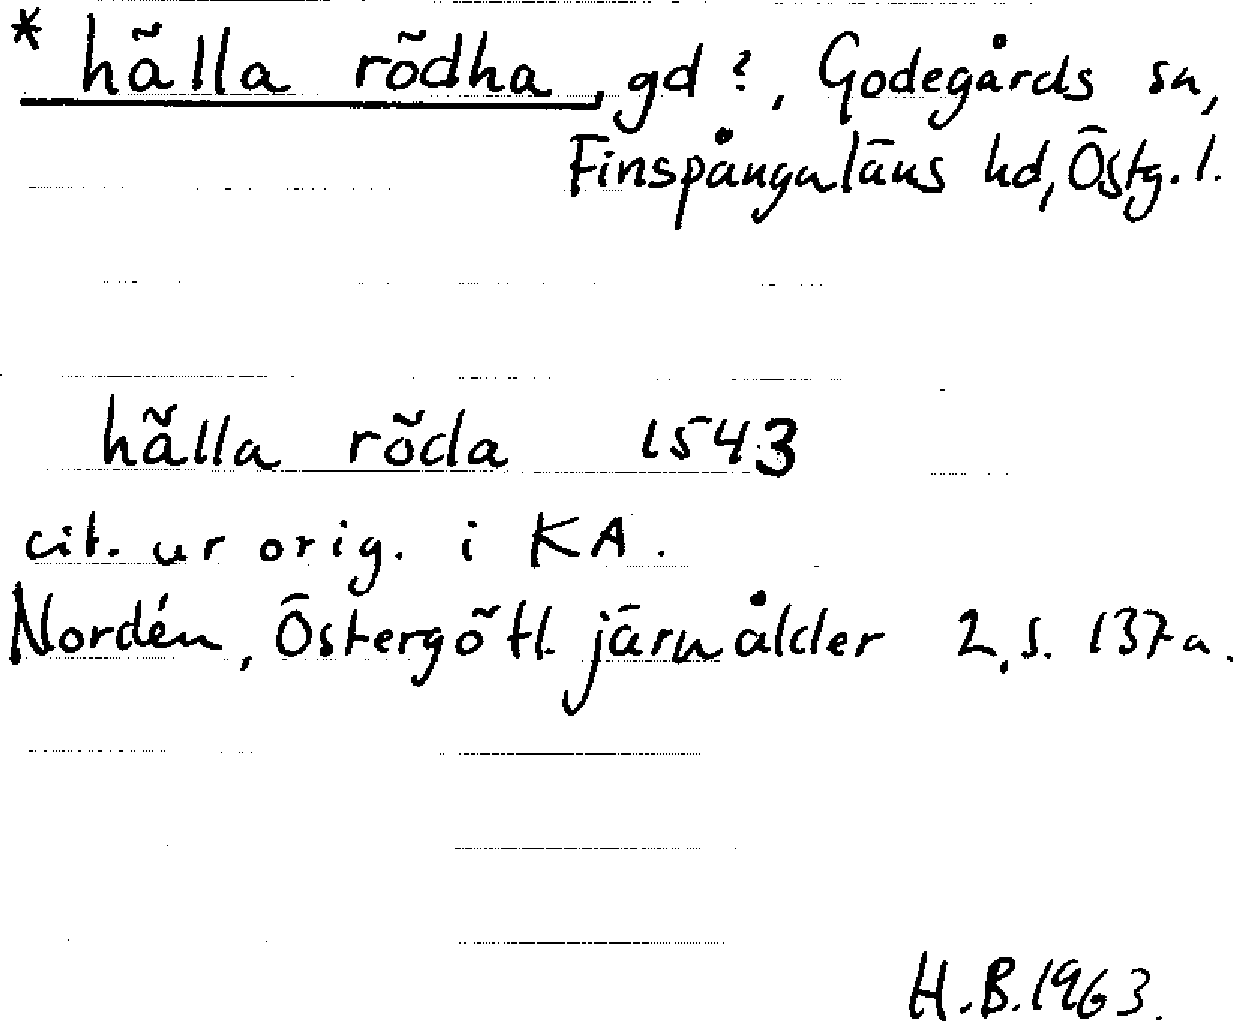 * hälla rödha, gd?, Godegårds sn,
Finspångaläns hd, Östg. l.
hälla röda 1543
cit. ur orig. i KA.
Nordén, Östergötl. järnålder 2, s. 137 a.
H.B. 1963.